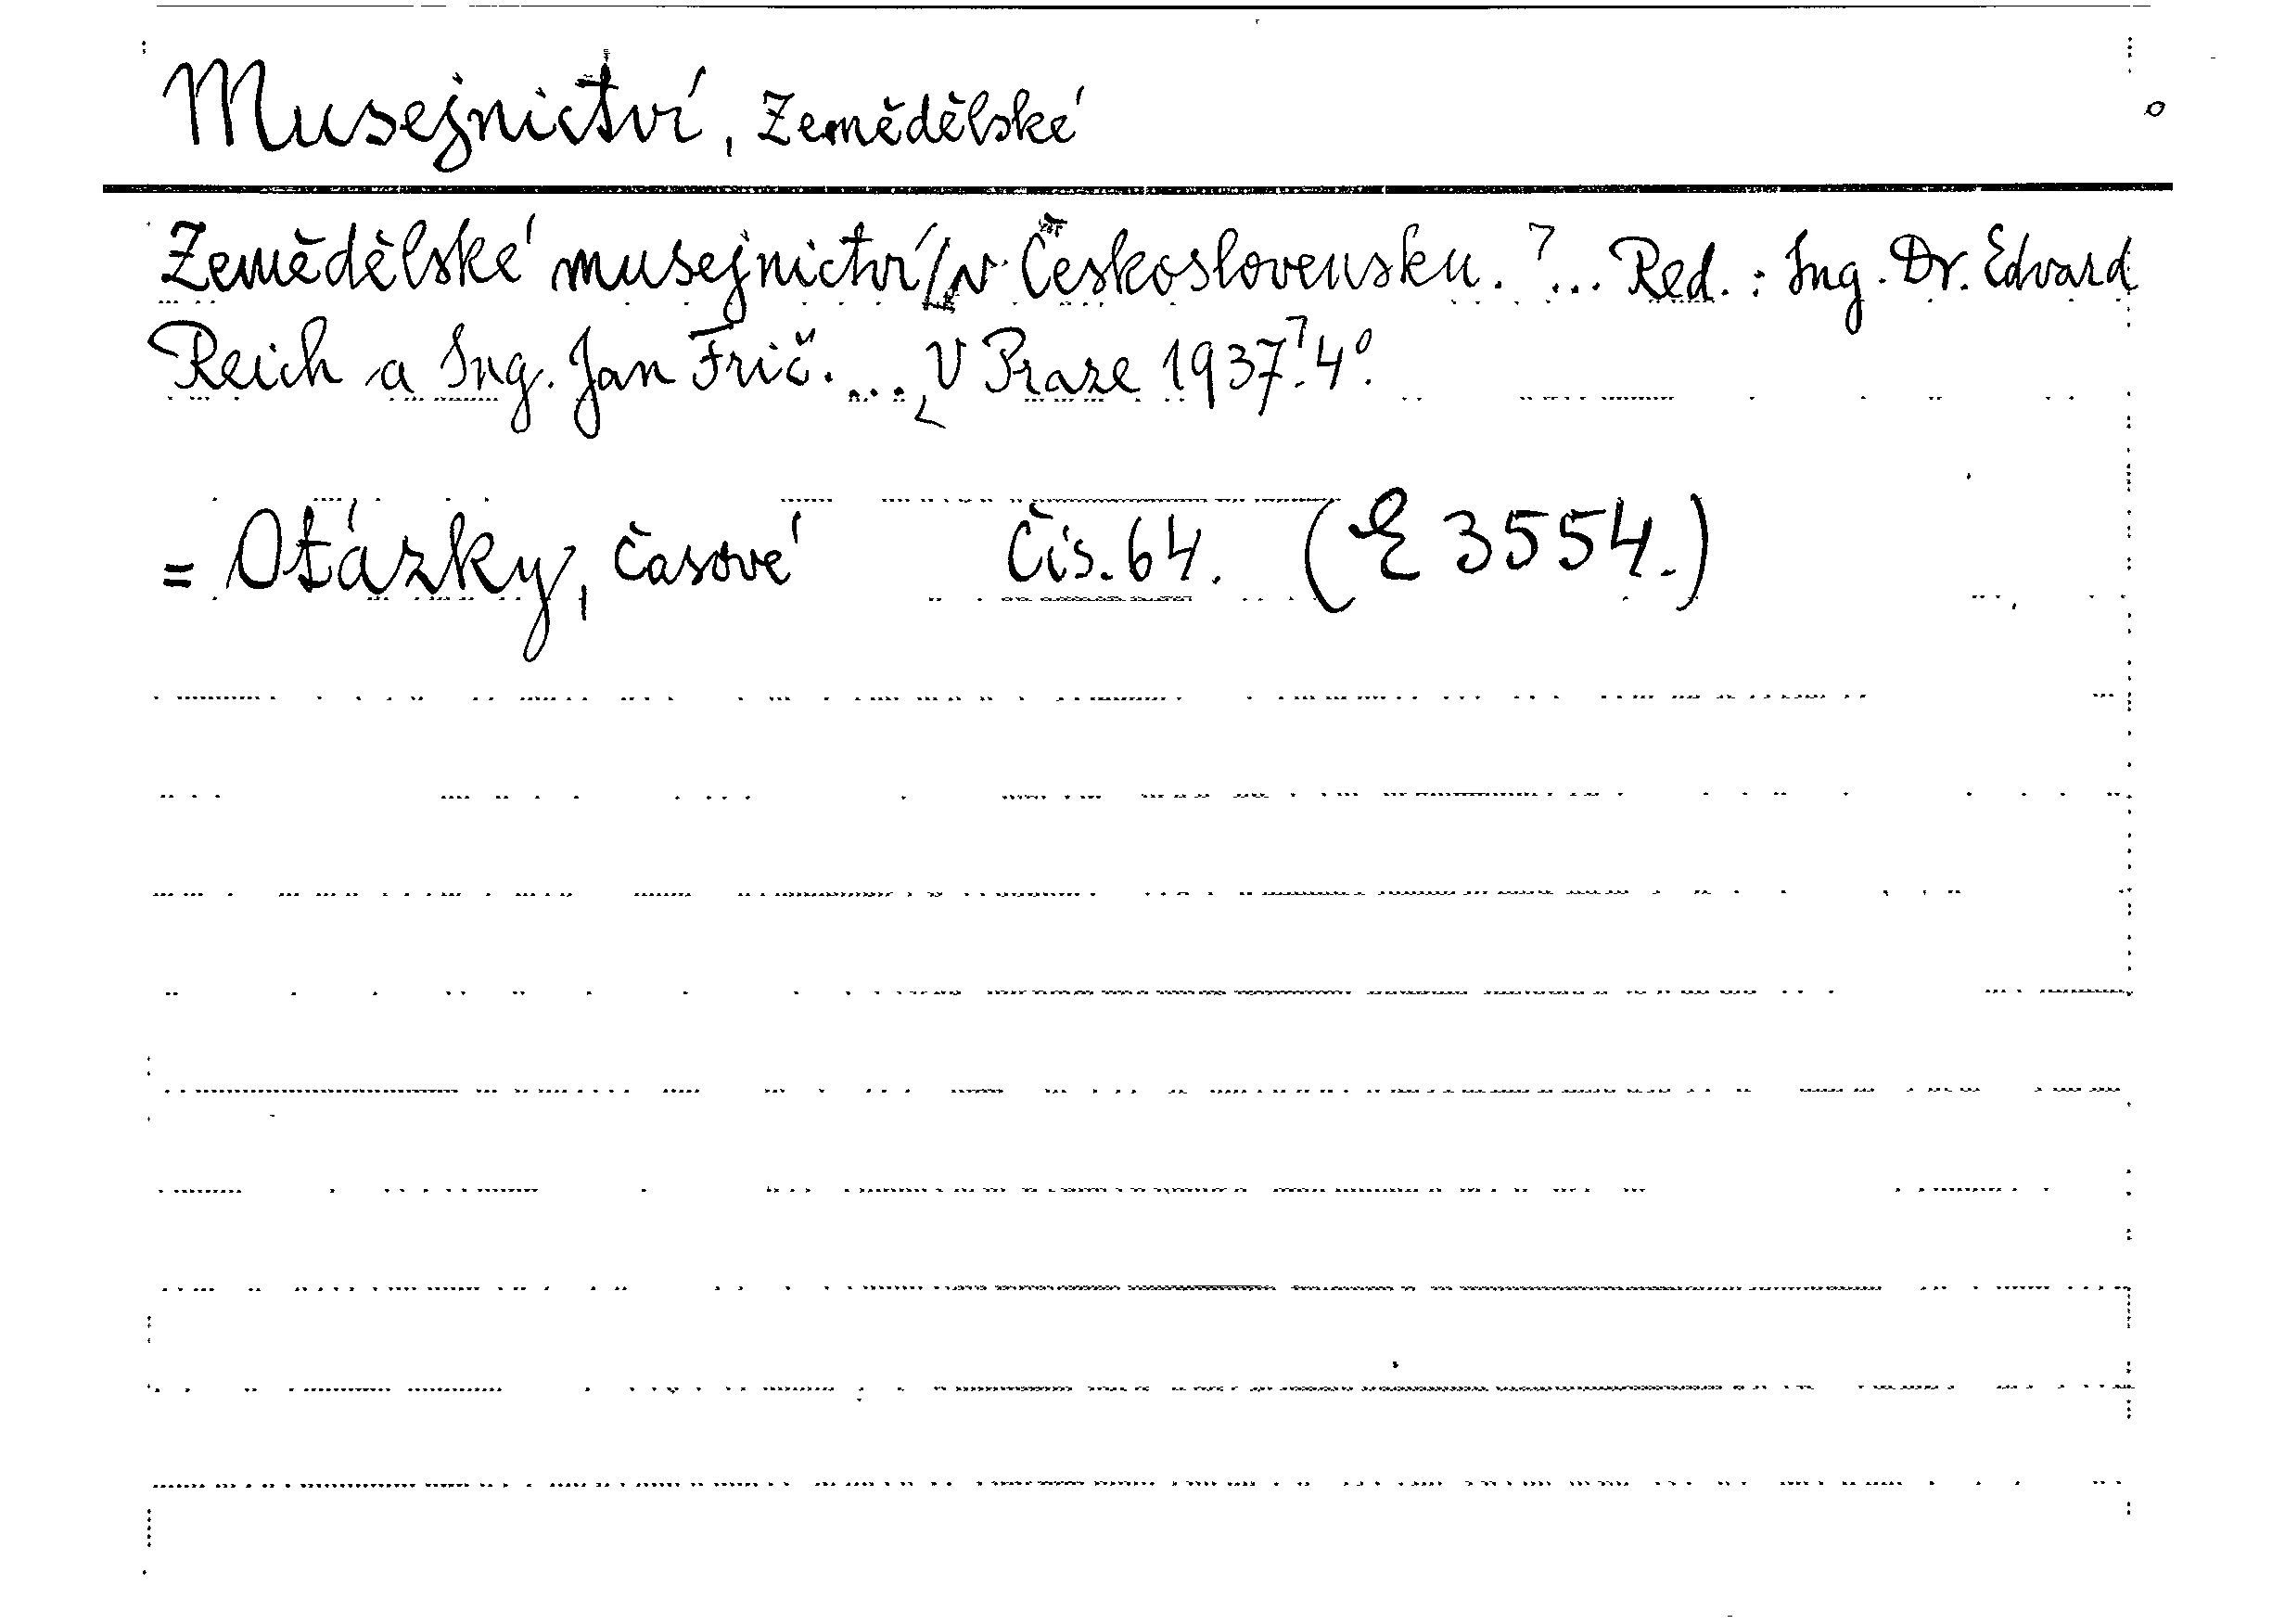 Musejnictví, Zemědělské
Zemědělské musejnictví/v Československu. ... Red.: Ing. Dr. Edvard
Reich a Ing. Jan Frič. ... V Praze 1937. 4°.
= Otázky, časové Čís. 64. (E 3554.)